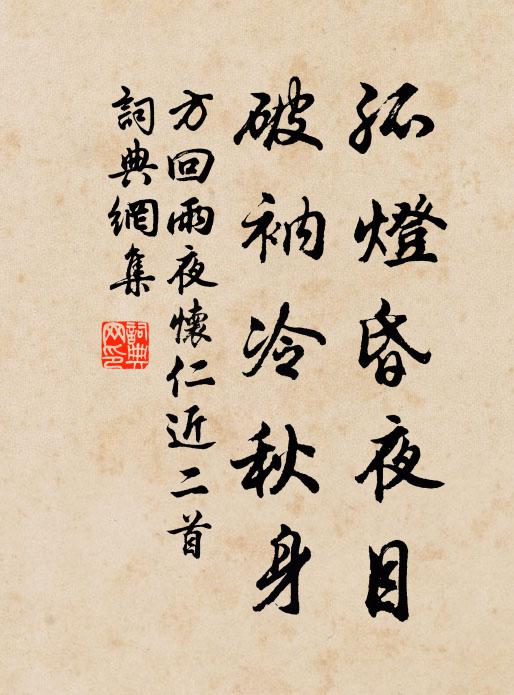 孤燈昏夜目
破衲冷秋身
方回雨夜懷仁近二首
詞典網集
詞典網印